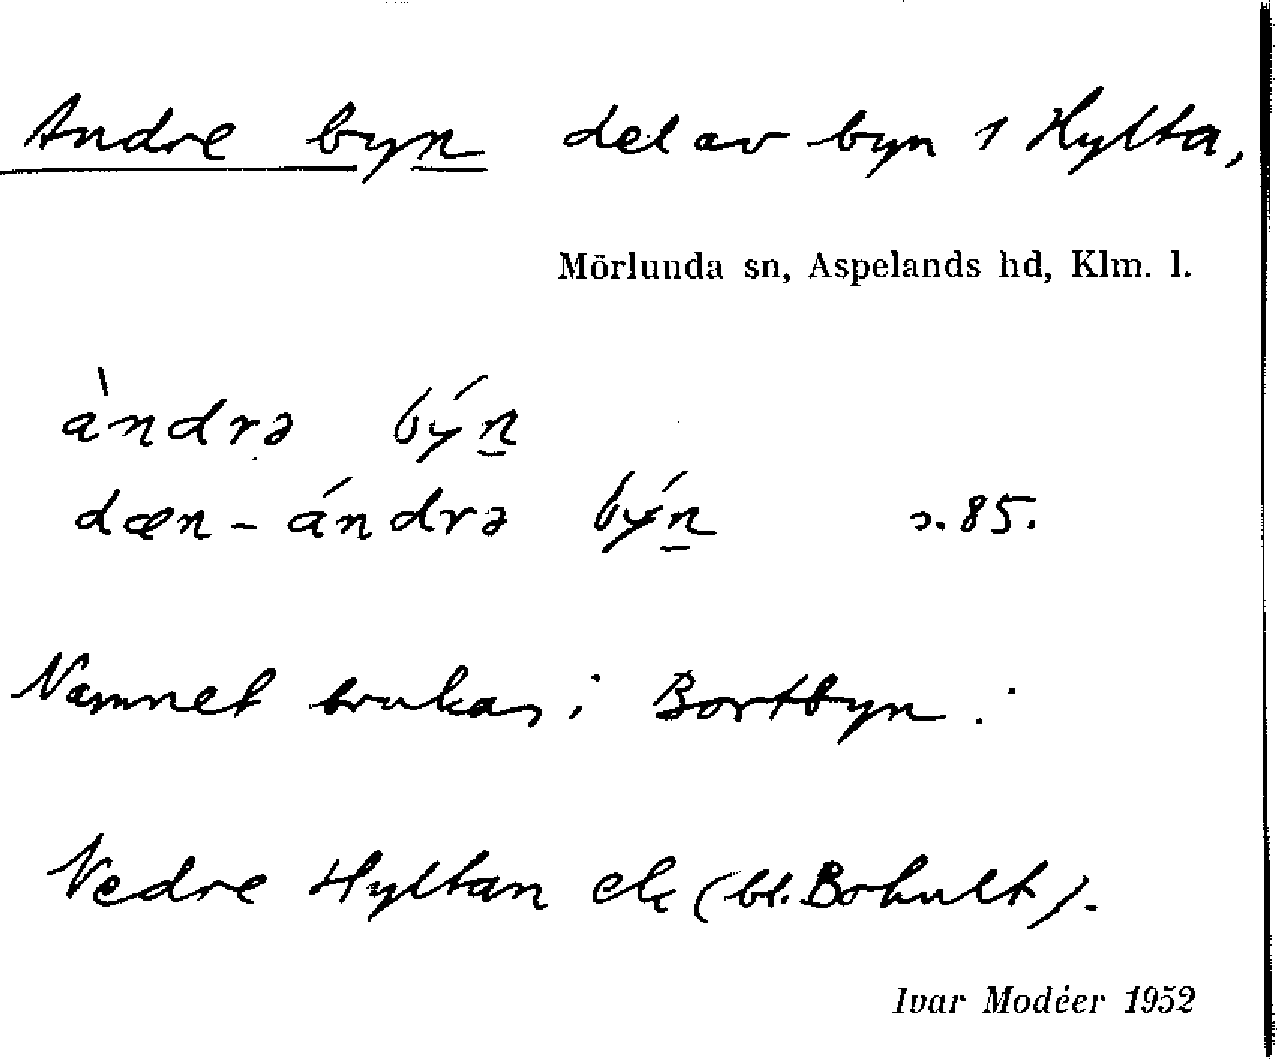 Andre byn del av byn 1 Hylta,
Mörlunda sn, Aspelands hd, Klm. l.
àndrə býn
dæn-ándrə býn s. 85.
Namnet brukas i Bortbyn.
Nedre Hyltan ek (bl. Bohult).
Ivar Modéer 1952